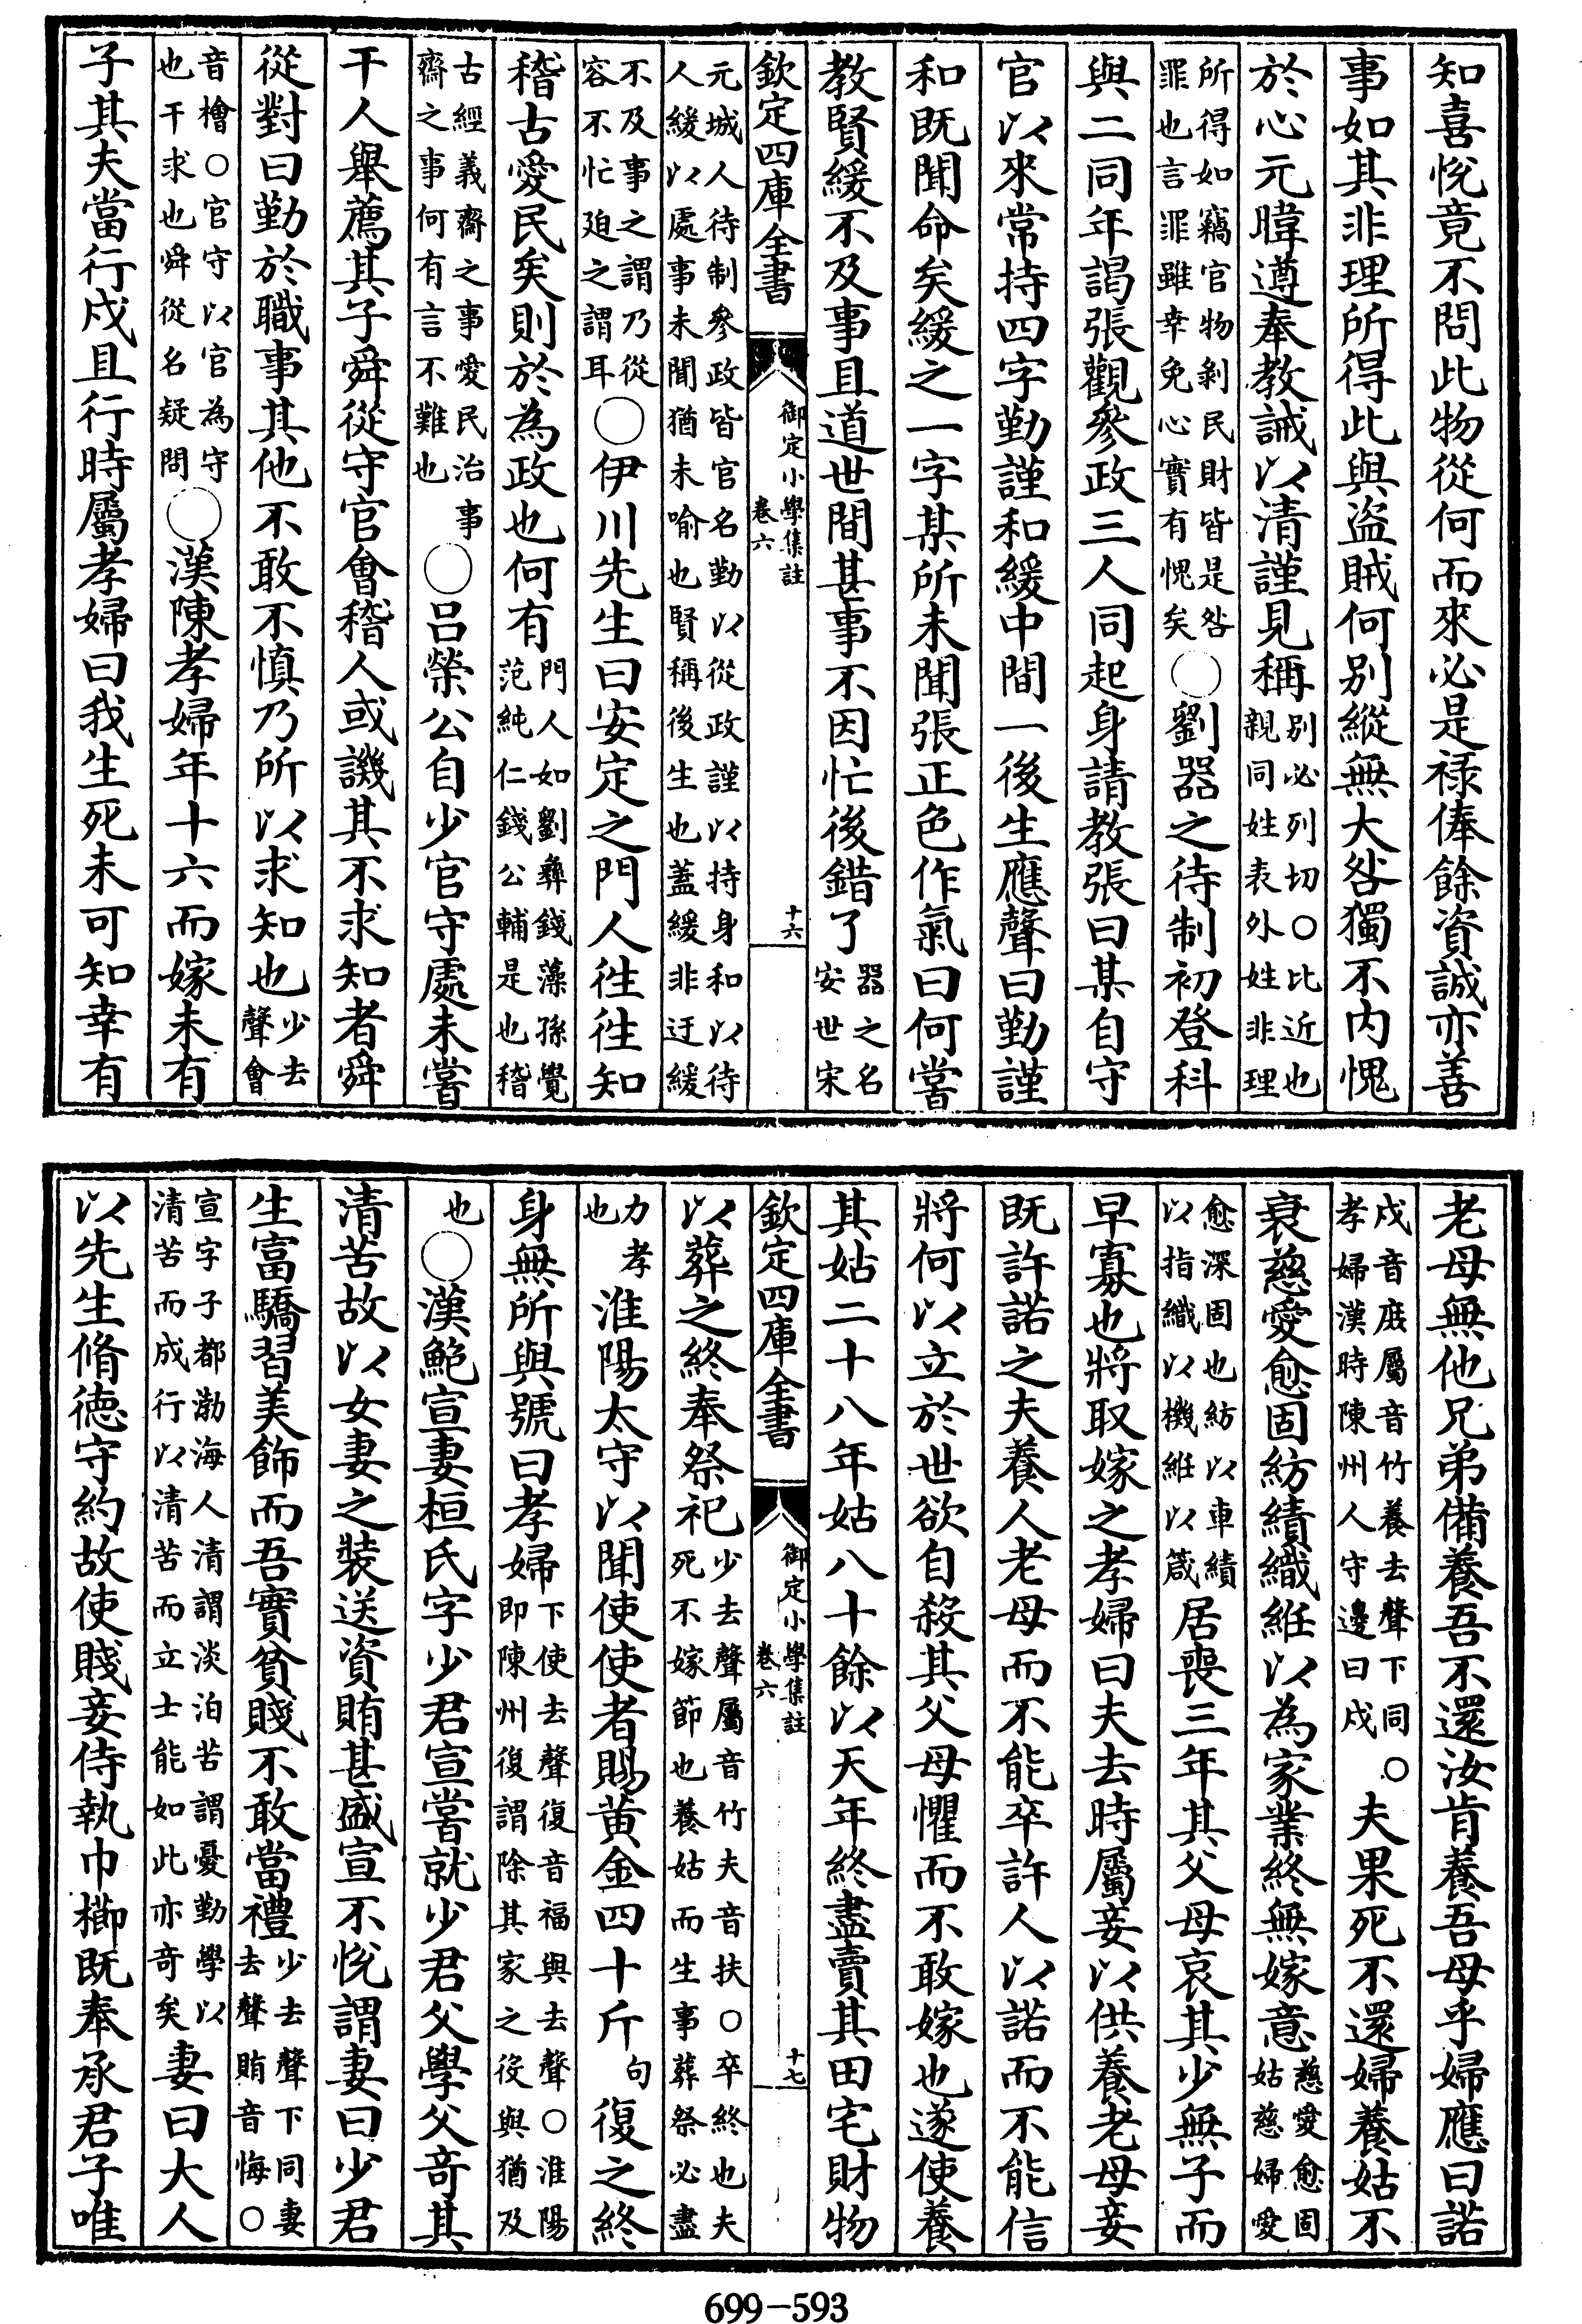 知喜悅竟不問此物從何而來必是禄俸餘資誠亦善
事如其非理所得此與盜賊何别縱無大咎獨不内愧
於心元暐遵奉教誡以清謹見稱别必列切○比近也親同姓表外姓非理
所得如竊官物剝民財皆是咎罪也言罪雖幸免心實有愧矣○劉器之待制初登科
與二同年謁張觀參政三人同起身請教張曰某自守
官以來常持四字勤謹和緩中間一後生應聲曰勤謹
和既聞命矣緩之一字某所未聞張正色作氣曰何嘗
教賢緩不及事且道世間甚事不因忙後錯了器之名安世宋
欽定四庫全書 御定小學集註 卷六 十六
元城人待制參政皆官名勤以從政謹以持身和以待人緩以處事未聞猶未喻也賢稱後生也蓋緩非迂緩
不及事之謂乃從容不忙廹之謂耳○伊川先生曰安定之門人徃徃知
稽古愛民矣則於為政也何有門人如劉彝錢藻孫覺范純仁錢公輔是也稽
古經義齋之事愛民治事齋之事何有言不難也○呂榮公自少官守處未嘗
干人舉薦其子舜從守官會稽人或譏其不求知者舜
從對曰勤於職事其他不敢不慎乃所以求知也少去聲會
音檜○官守以官為守也干求也舜從名疑問○漢陳孝婦年十六而嫁未有
子其夫當行戍且行時屬孝婦曰我生死未可知幸有
老母無他兄弟備養吾不還汝肯養吾母乎婦應曰諾
戍音庻屬音竹養去聲下同○孝婦漢時陳州人守邊曰戍夫果死不還婦養姑不
衰慈愛愈固紡績織紝以為家業終無嫁意慈愛愈固姑慈婦愛
愈深固也紡以車績以指織以機紝以箴居喪三年其父母哀其少無子而
早寡也將取嫁之孝婦曰夫去時屬妾以供養老母妾
既許諾之夫養人老母而不能卒許人以諾而不能信
將何以立於世欲自殺其父母懼而不敢嫁也遂使養
其姑二十八年姑八十餘以天年終盡賣其田宅財物
欽定四庫全書 御定小學集註 卷六 十七
以葬之終奉祭祀少去聲屬音竹夫音扶○卒終也夫死不嫁節也養姑而生事葬祭必盡
力孝也淮陽太守以聞使使者賜黃金四十斤句復之終
身無所與號曰孝婦下使去聲復音福與去聲○淮陽即陳州復謂除其家之役與猶及
也○漢鮑宣妻桓氏字少君宣嘗就少君父學父奇其
清苦故以女妻之裝送資賄甚盛宣不悅謂妻曰少君
生富驕習美飾而吾實貧賤不敢當禮少去聲下同妻去聲賄音悔○
宣字子都渤海人清謂淡泊苦謂憂勤學以清苦而成行以清苦而立士能如此亦奇矣妻曰大人
以先生脩徳守約故使賤妾侍執巾櫛既奉承君子唯
699-593